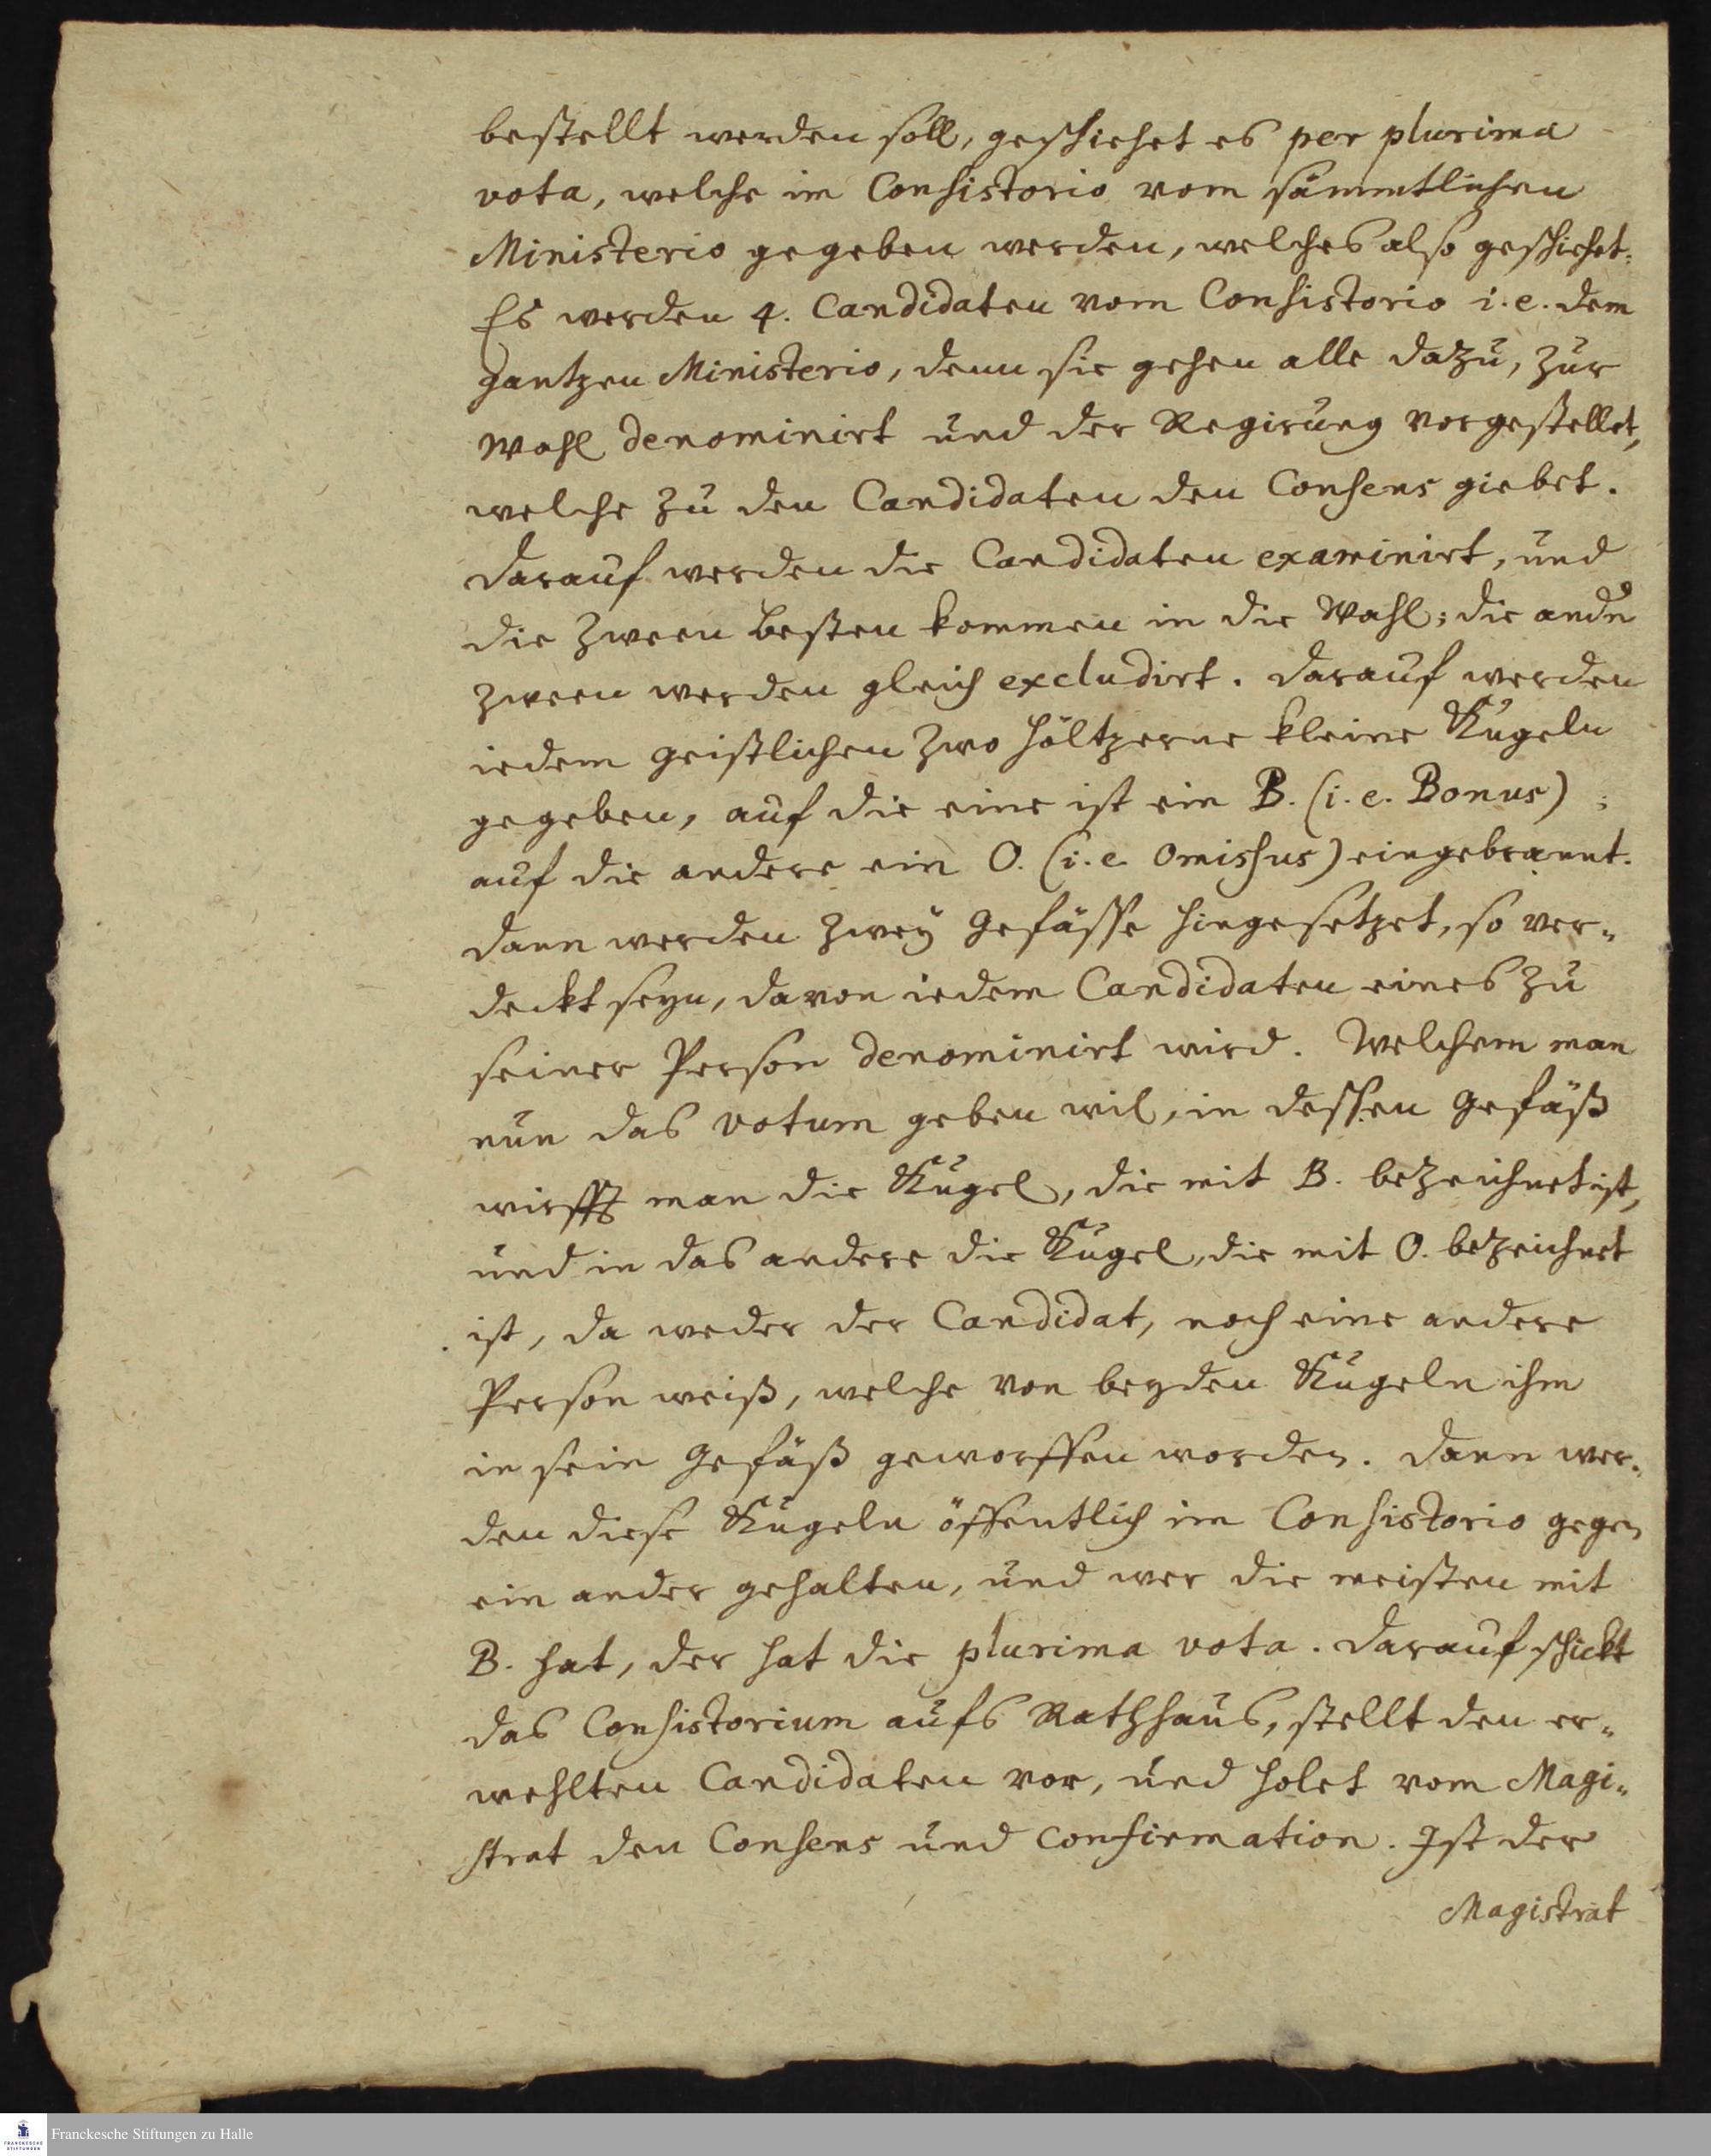 bestellt werden soll, geschiehet es per plurima
vota, welche im Consistorio vom sämmtlichen
Ministerio gegeben werden, welches also geschiehet:
Es werden 4. Candidaten vom Consistorio i.e. dem
gantzen Ministerio, denn sie gehen alle dazu, zur
Wahl denominirt und der Regirung vorgestellet,
welche zu den Candidaten den Consens giebet.
Darauf werden die Candidaten examinirt, und
die zween besten kommen in die Wahl; die andn
zween werden gleich excludirt. Darauf werden
iedem Geistlichen zwo höltzerne kleine Kugeln
gegeben, auf die eine ist ein B. (i.e. Bonus);
auf die andere ein O. (i.e. omissus) eingebrannt.
Dann werden zwey Gefässe hingesetzet, so ver„
deckt seyn, davon iedem Candidaten eines zu
seiner Person denominirt wird. Welchem man
nun das votum geben wil, in dessen Gefäß
wirfft man die Kugel, die mit B. bezeichnet ist,
und in das andere die Kugel, die mit O. bezeichnet
ist, da weder der Candidat, noch eine andere
Person weiß, welche von beyden Kugeln ihm
in sein Gefäß geworffen worden. Dann wer„
den diese Kugeln öffentlich im Consistorio gegen
ein ander gehalten, und wer die meisten mit
B. hat, der hat die plurima vota. Darauf schickt
das Consistorium aufs Rathhaus, stellt den er„
wehlten Candidaten vor, und holet vom Magi„
strat den Consens und Confirmation. Ist der
Magistrat
Franckesche Stiftungen zu Halle
FRANCKESCHE
STIFTUNGEN